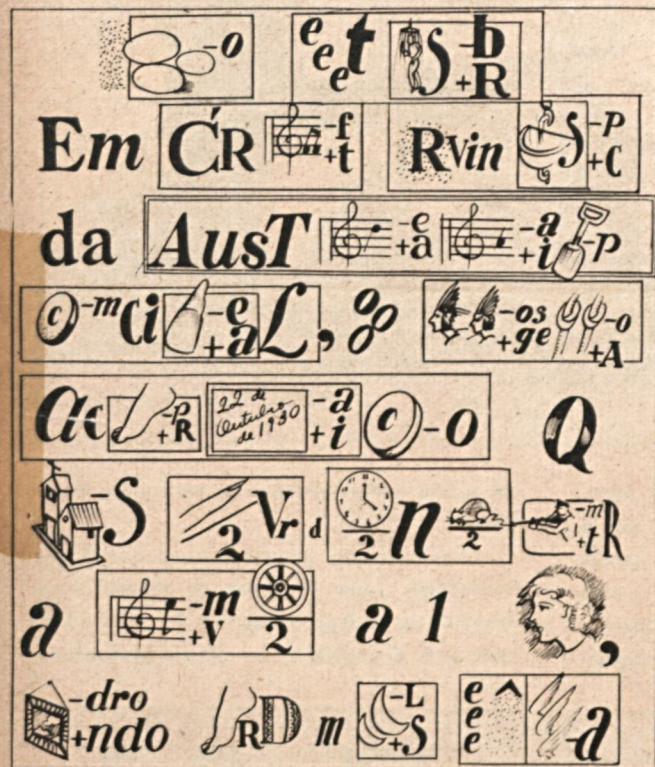 -o e e e t S -b +R
Em C'R ñ -f +t R vin S -P +C
da AusT -e +a -a +i -p
c -m Ci -e +a L, -os +ge -o +A
ac -p +R 22 de Outubro de 1930 -a +i c -o Q
-S 2 Vr d 2 n 2 -m +t R
a -m +v 2 a 1 ,
-dro +ndo R D m -L +S e e e -a